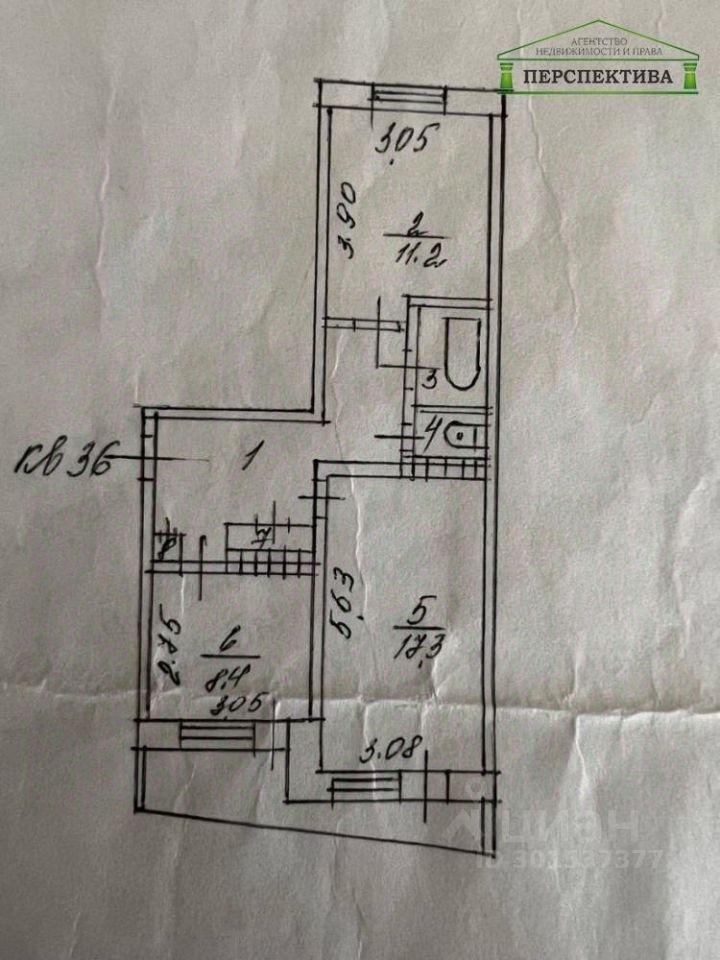 АГЕНТСТВО
НЕДВИЖИМОСТИ И ПРАВА
ПЕРСПЕКТИВА
3.05
3.90
2
11.2
3
4
кв 36
1
7
8
5.63
5
17.3
2.75
6
8.4
3.05
3.08
циан